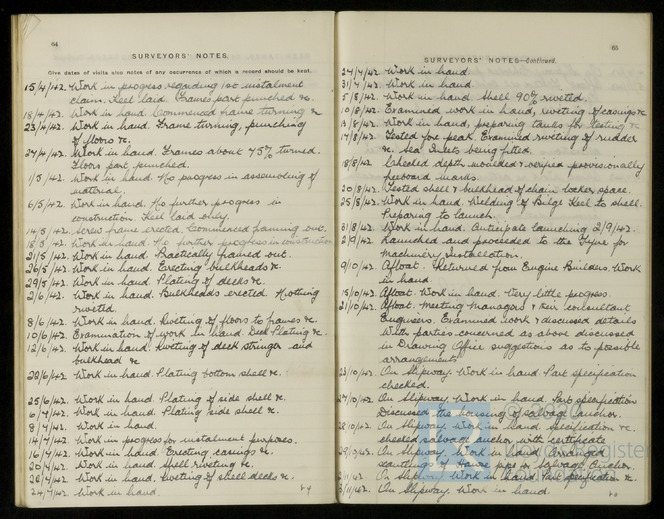 64
SURVEYORS' NOTES.
Give dates of visits also notes of any occurrence of which a record should be kept.
15/4/42. Work in progress regarding 1st instalment
claim. Keel laid. Frames part punched &c.
18/4/42. Work in hand. Commenced frame turning &c
23/4/42. Work in hand. Frame turning, punching
of floors &c.
27/4/42. Work in hand. Frames about 75% turned.
Floors part punched.
1/5/42. Work in hand. No progress in assembling of
material.
6/5/42. Work in hand. No further progress in
construction. Keel laid only.
14/5/42. frame erected. Commenced framing out.
18/5/42. Work in hand. No further progress in construction
21/5/42. Work in hand. Practically framed out.
26/5/42. Work in hand. Erecting bulkheads &c.
29/5/42. Work in hand. Plating of decks &c.
2/6/42. Work in hand. Bulkheads erected. Nothing
riveted.
8/6/42. Work in hand. Riveting of floors to frames &c.
10/6/42. Examination of work in hand. Deck Plating &c.
12/6/42. Work in hand. Riveting of deck stringer and
bulkhead &c
22/6/42. Work in hand. Plating bottom shell &c.
25/6/42. Work in hand. Plating of side shell &c.
6/7/42. Work in hand. Plating side shell &c.
8/7/42. Work in hand.
14/7/42. Work in progress for instalment purposes.
16/7/42. Work in hand. Erecting casings &c.
20/7/42. Work in hand. Shell riveting &c.
22/7/42. Work in hand. Riveting of shell decks &c.
24/7/42. Work in hand.
65
SURVEYORS' NOTES—Continued.
27/7/42. Work in hand.
31/7/42. Work in hand.
5/8/42. Work in hand. Shell 90% riveted.
10/8/42. Examined work in hand, riveting of casings &c
/8/42. Work in hand, preparing tanks for testing &c
17/8/42. Tested fore peak. Examined riveting of rudder
&c. Sea Inlets being fitted.
18/8/42. Checked depth moulded & verified provisionally
freeboard marks.
20/8/42. Tested shell & bulkhead of chain locker space.
25/8/42. Work in hand. Welding of Bilge Keel to shell.
Preparing to launch.
31/8/42. Work in hand. Anticipate launching 2/9/42.
2/9/42. Launched and proceeded to the Tyne for
Machinery installation.
9/10/42. Afloat. Returned from Engine Builders. Work
in hand.
15/10/42. Afloat. Work in hand. Very little progress.
21/10/42. Afloat. Meeting Managers & their consultant
Engineers. Examined work & discussed details
with parties concerned as above discussed
in Drawing Office suggestions as to possible
arrangements.
23/10/42. On Slipway. Work in hand Part specification
checked.
27/10/42. On Slipway. Work in hand. Part specification
Discussed the housing of salvage anchor.
28/10/42. On Slipway. Work in hand. Specification &c.
checked, salvage anchor with certificate
On Slipway. Work in hand. Arranged
scantling of Hawse pipe for Salvage Anchor.
2/11/42. On Slipway Work in hand. Part specification &c.
3/11/42. On Slipway. Work in hand.